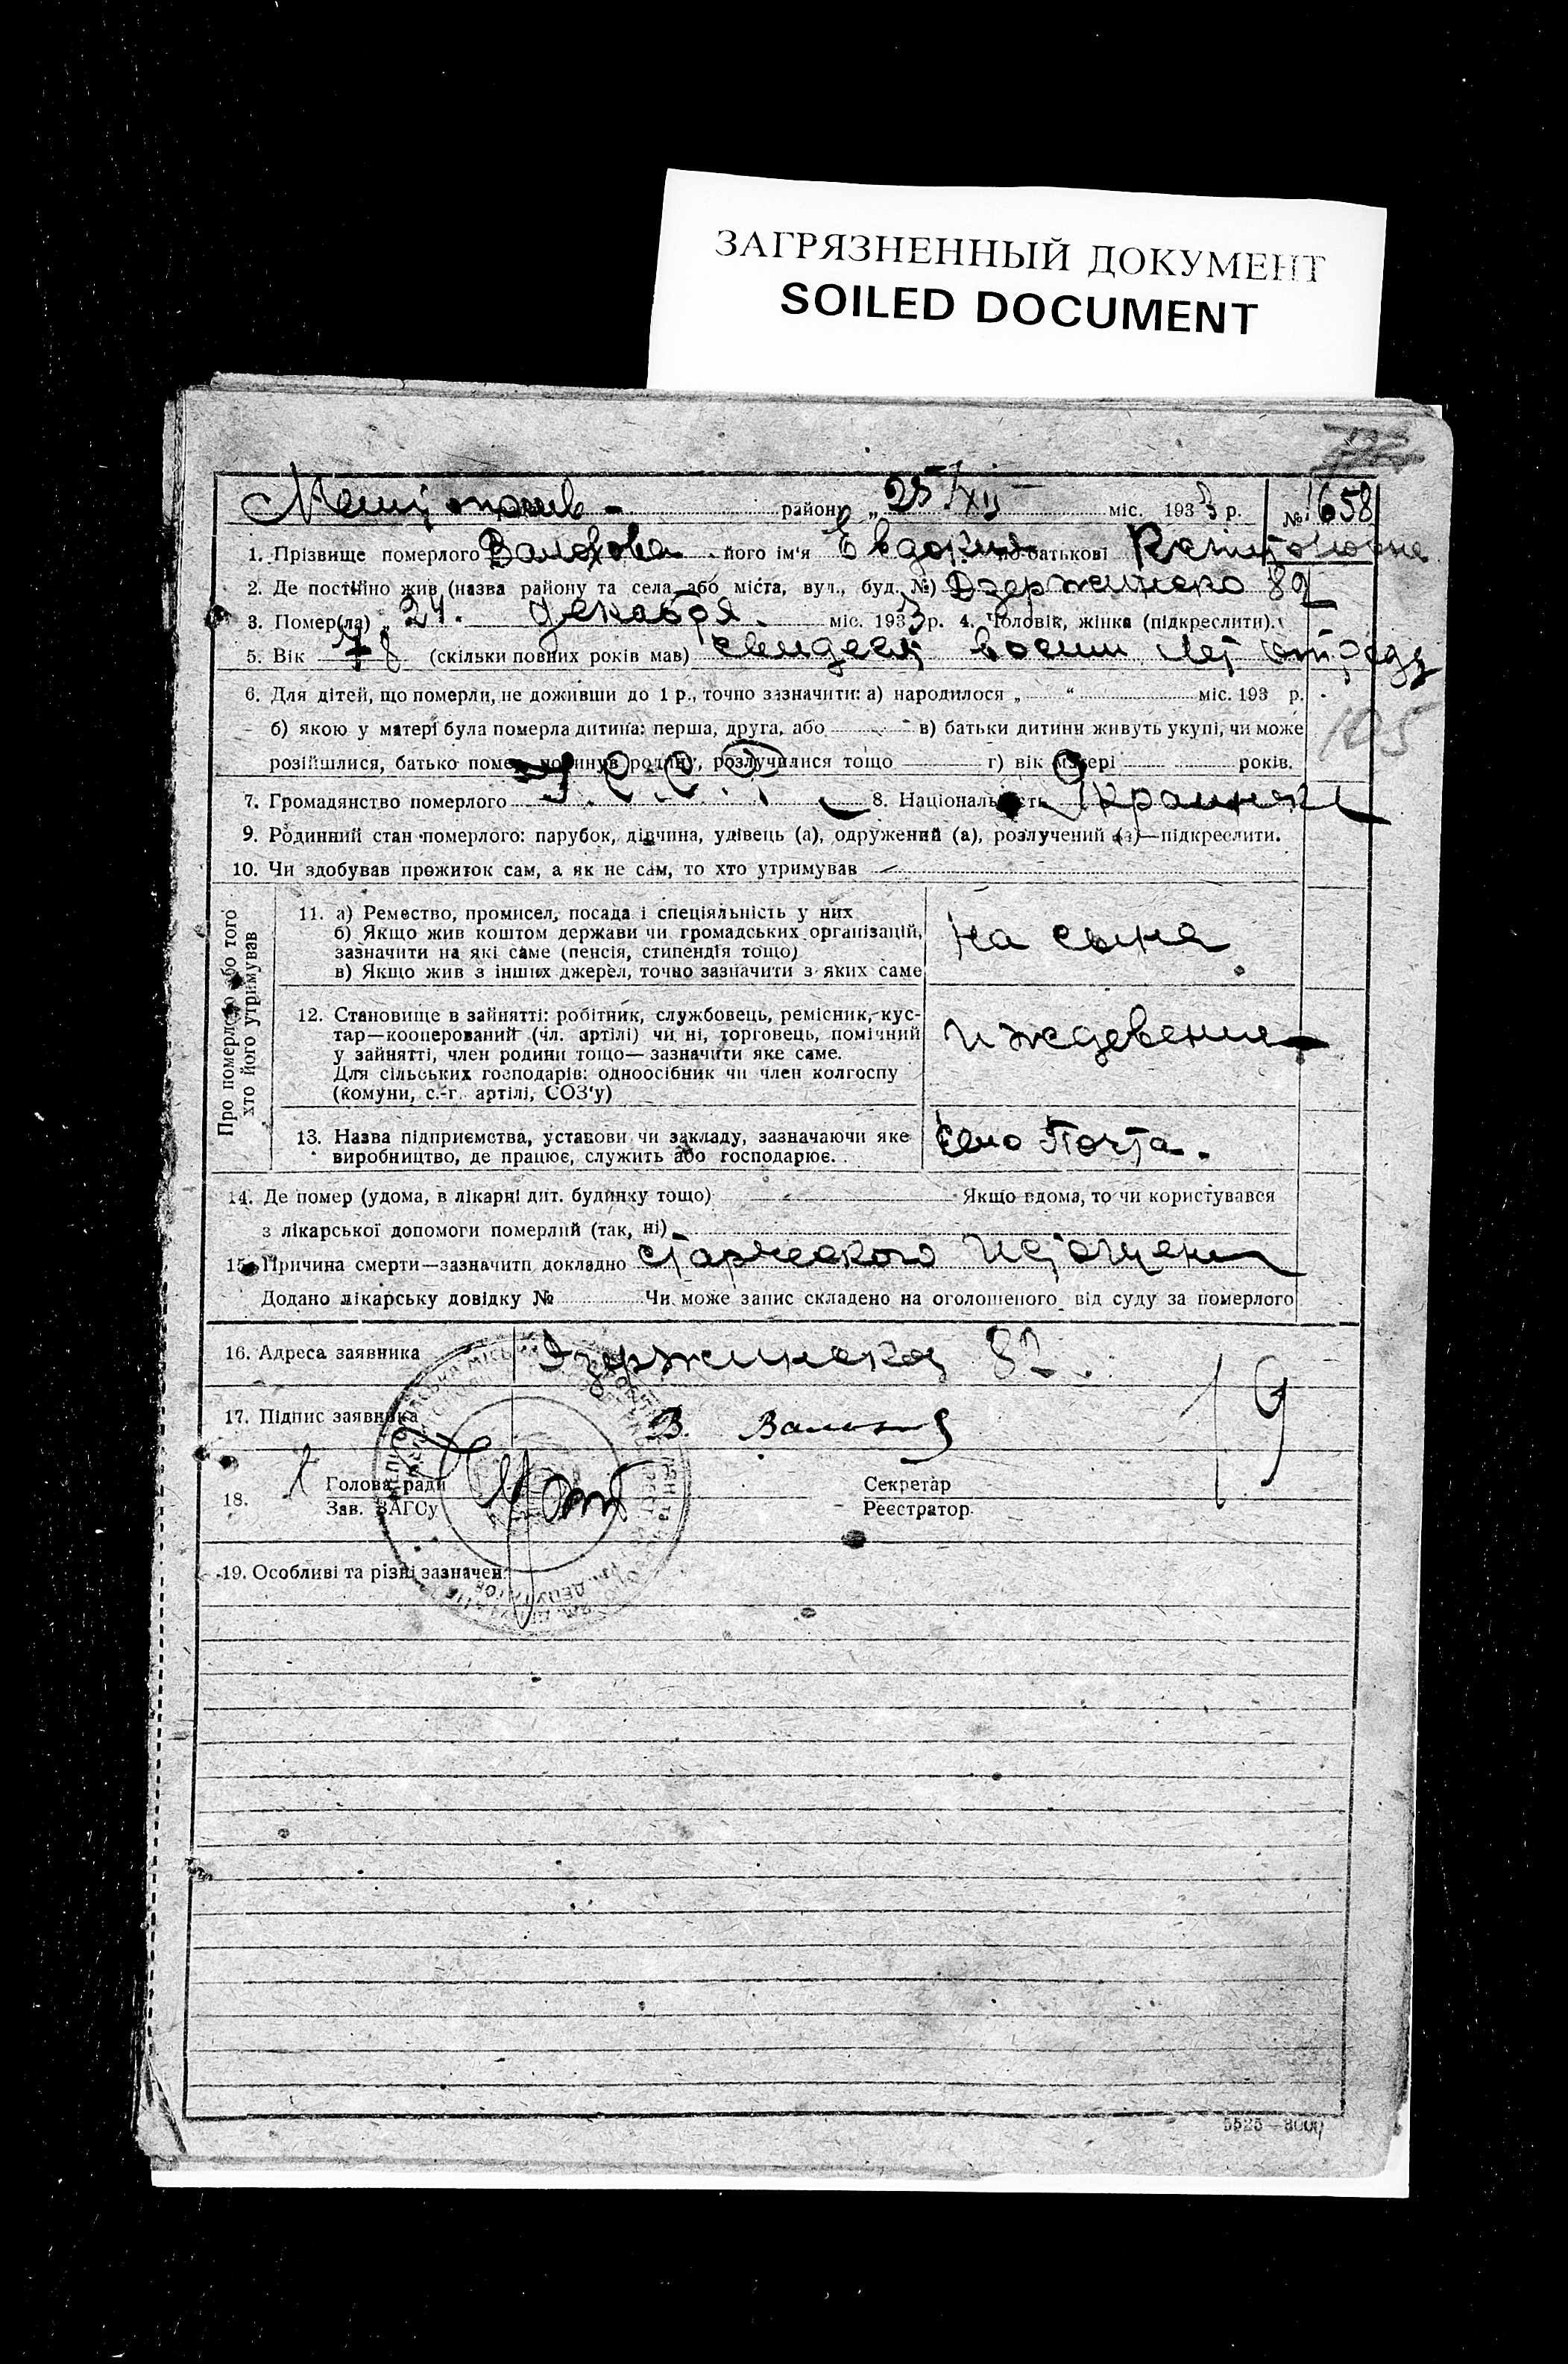 ЗАГРЯЗНЕННЫЙ ДОКУМЕНТ
SOILED DOCUMENT
району „25/XII міс. 1933 р. № 1658
1. Прізвище померлого Валохова його ім'я Евдокия по батькові
2. Де постійно жив (назва району та села або міста, вул., буд. №) Дзержинско 82
3. Помер(ла) „24. декабря міс. 1933 р. 4. Чоловік, жінка (підкреслити).
5. Вік 78 (скільки повних років мав) восим лет
6. Для дітей, що померли, не доживши до 1 р., точно зазначити: а) народилося „ “ міс. 193 р.
б) якою у матері була померла дитина: перша, друга, або в) батьки дитини живуть укупі, чи може
105
розійшлися, батько помер, покинув родину, розлучилися тощо г) вік матері років.
7. Громадянство померлого У.С.С.Р. 8. Національність
9. Родинний стан померлого: парубок, дівчина, удівець (а), одружений (а), розлучений (а)—підкреслити.
10. Чи здобував прожиток сам, а як не сам, то хто утримував
Про померлого або того хто його утримував
11. а) Ремество, промисел, посада і спеціяльність у них
б) Якщо жив коштом держави чи громадських організацій,
зазначити на які саме (пенсія, стипендія тощо)
в) Якщо жив з інших джерел, точно зазначити з яких саме
на сына
12. Становище в зайнятті: робітник, службовець, ремісник, кус-
тар—кооперований (чл. артілі) чи ні, торговець, помічний
у зайнятті, член родини тощо— зазначити яке саме.
Для сільських господарів: одноосібник чи член колгоспу
(комуни, с.-г. артілі, СОЗ'у)
иждевении
13. Назва підприємства, установи чи закладу, зазначаючи яке
виробництво, де працює, служить або господарює.
Почта.
14. Де помер (удома, в лікарні дит. будинку тощо) Якщо вдома, то чи користувався
з лікарської допомоги померлий (так, ні)
15. Причина смерти—зазначити докладно старческого
Додано лікарську довідку № Чи може запис складено на оголошеного від суду за померлого
16. Адреса заявника Дзержинская 82.
17. Підпис заявника В.
18. Голова ради
Зав. ЗАГСу
Секретар
Реєстратор
19. Особливі та різні зазначен.
5525—3000